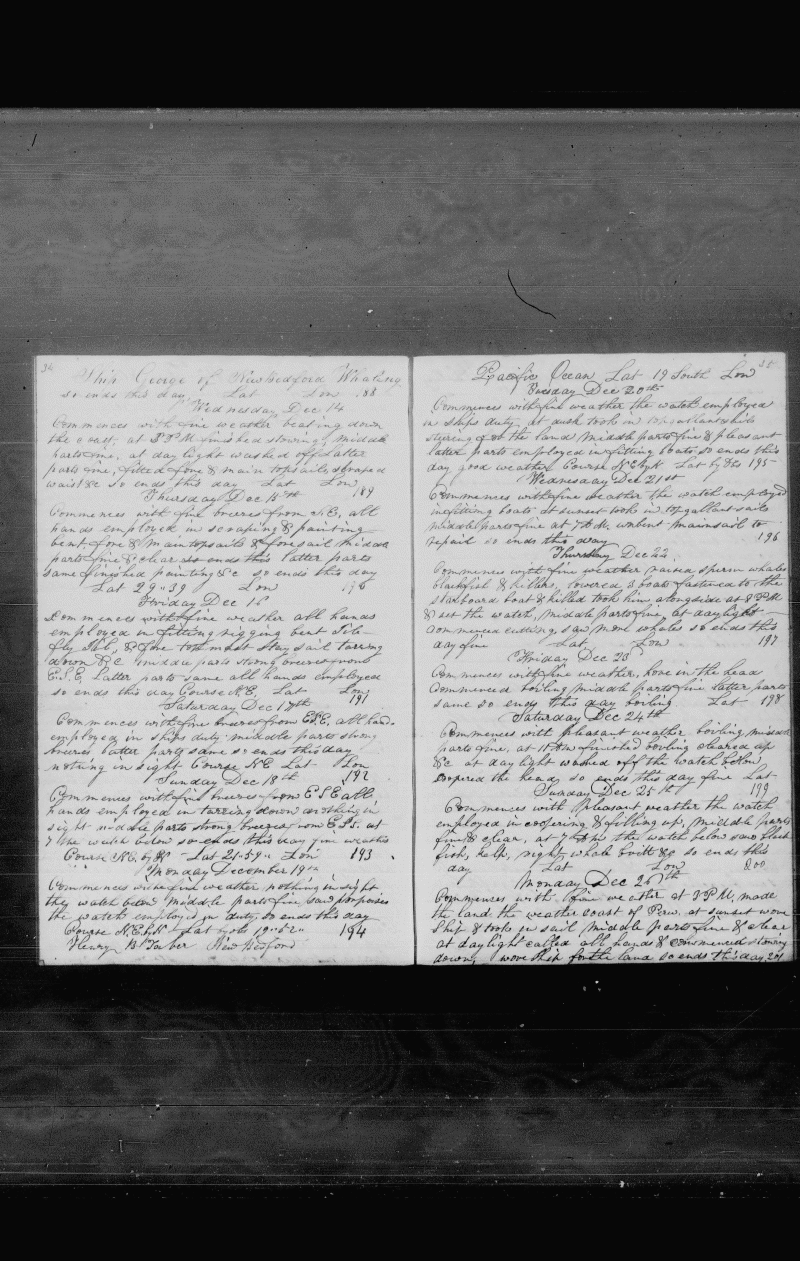 34
Ship George of New Bedford Whaling
so ends this day Lat Lon 188
Wednesday Dec 14
Commences with fine weather beating down
the coast, at 3 PM finished stowing, middle
parts fine, at day light washed off latter
parts fine, fitted fore & main topsails, scraped
waist &c so ends this day Lat Lon
Thursday Dec 15th 189
Commences with fine breeres from N.E, all
hands employed in scraping & painting
bent fore & main topsails & foresail middle
parts fine & clear so ends this latter parts
same finished painting &c so ends this day
Lat 29"39 Lon 190
Friday Dec 16
Commences with fine weather all hands
employed in fitting rigging bent Jib
fly Jib, & fore top most stay sail tarring
down &c middle parts strong breeres from
E.S.E, Latter parts same all hands employed
so ends this day Course N.E, Lat Lon
Saturday Dec 17th 191
Commences with fine breeres from E.S.E, all hands
employed in ships duty middle parts strong
breeres latter parts same so ends this day
nothing in sight Course N.E Lat Lon
Sunday Dec 18th 192
Commences with fine breeres from E S E all
hands employed in tarring down nothing in
sight middle parts strong breeres from E.S.E. at
7 the watch below so ends this day fine weather
Course N.E. by N Lat 21"59" Lon 193
Monday December 19th
Commences with fine weather nothing in sight
the watch below middle parts fine saw porpoises
the watch employed in duty, so ends this day
Course N.E. by N Lat by obs 19"52" 194
Henry New Bedford
35
Pacific Ocean Lat 19 South Lon
Tuesday Dec 20th
Commences with fine weather the watch employed
in ships duty, at dusk took in topgallantsails
steering for the land middle parts fine & pleasant
latter parts employed in fitting boats so ends this
day good weather Course N E by N Lat by Obs 195
Wednesday Dec 21st
Commences with fine weather the watch employed
in fitting boats at sunset took in topgallant sails
middle parts fine at 7 A.M. unbent mainsail to
repair so ends this day 196
Thursday Dec 22
Commences with fine weather raised sperm whales
blackfish & killers, lowered 3 boats fastened to the
starboard boat & killed took him alongside at 8 P.M
& set the watch, middle parts fine at daylight
commenced cutting, saw more whales so ends this
day fine Lat Lon 197
Friday Dec 23
Commences with fine weather, hove in the head
Commenced boiling middle parts fine latter parts
same so ends this day boiling Lat 198
Saturday Dec 24th
Commences with pleasant weather boiling middle
parts fine, at 11 finished boiling cleared up
&c at day light washed off the watch below
coopered the head, so ends this day fine Lat
Sunday Dec 25th 199
Commences with pleasant weather the watch
employed in coopering & filling up, middle parts
fine & clear, at 7 the watch below saw black
fish, kelp, right whale &c so ends this
day Lat Lon 200
Monday Dec 26th
Commences with fine weather at 3 P.M, made
the land the weather coast of Peru, at sunset wove
ship & took in sail middle parts fine & clear
at daylight called all hands & commenced stowing
down, wove ship for the land so ends this day, 201